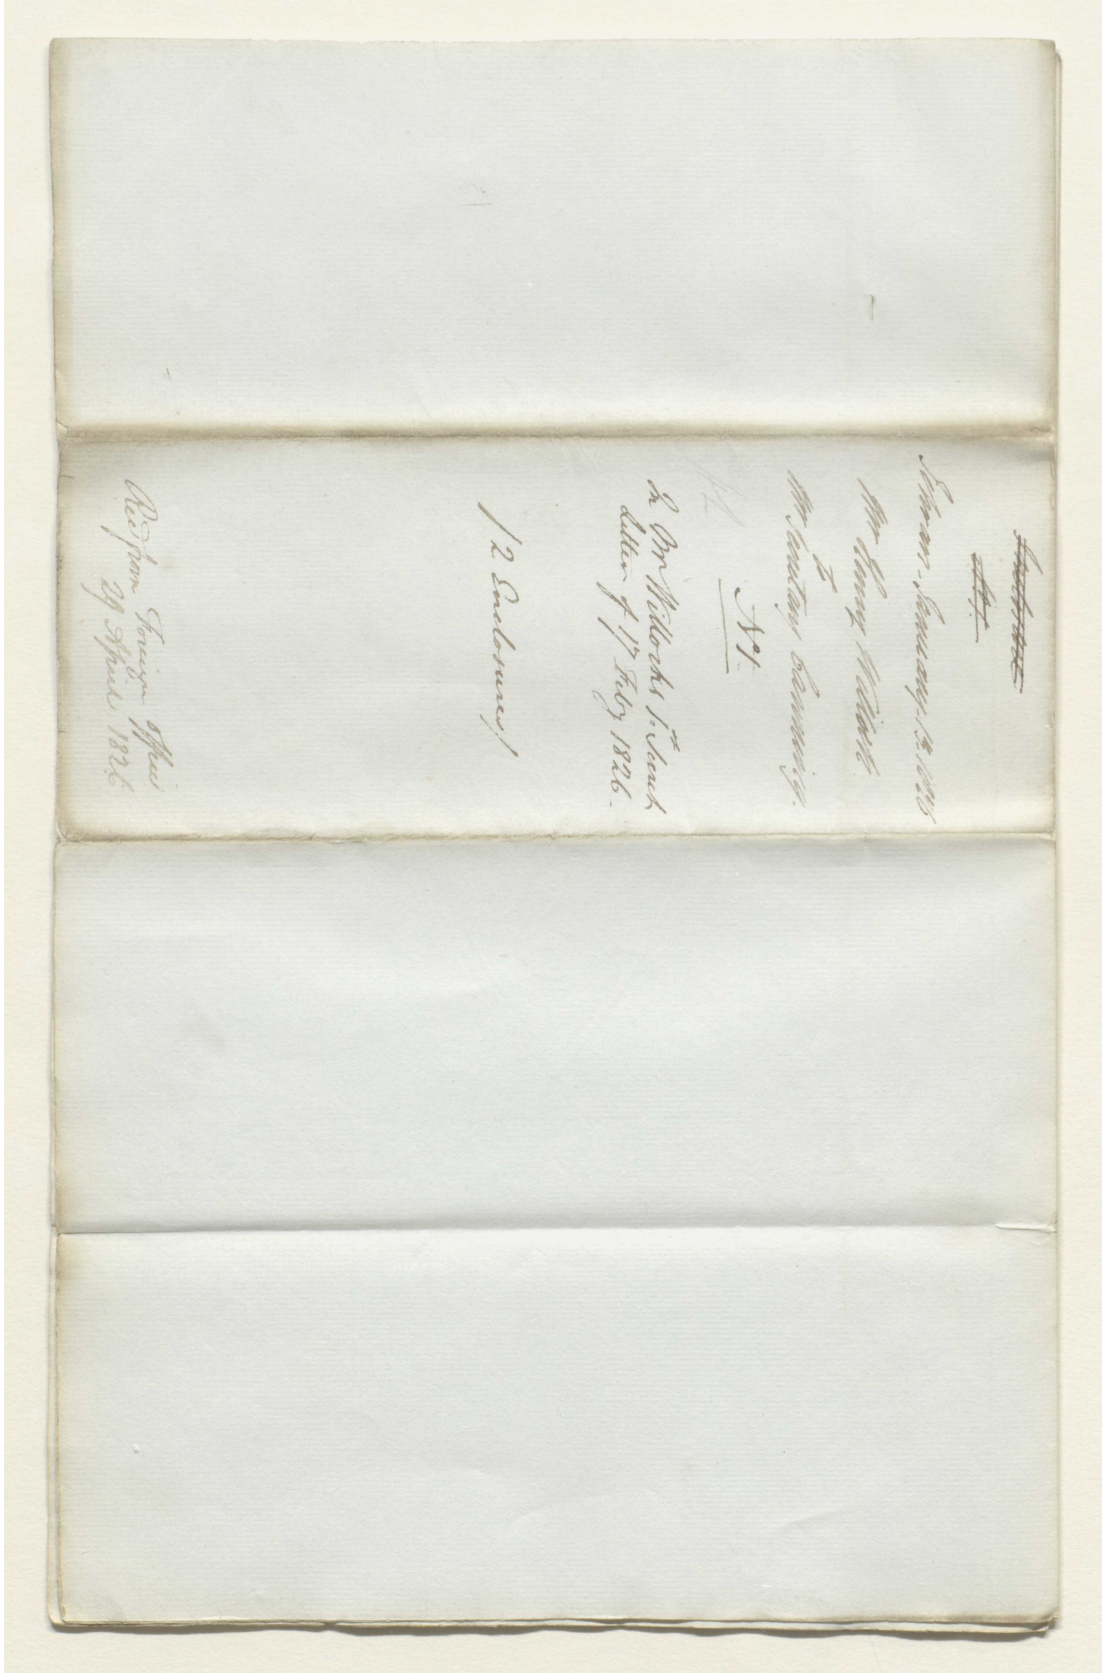 Tehran, January 13. 1826
Mr Henry Willock
to
Mr Secretary Canning.
N° 1.
In Mr Willocks Secret
Letter of 17 Feby 1826.
12 Enclosures/
Recd from Foreign Office
29 April 1826